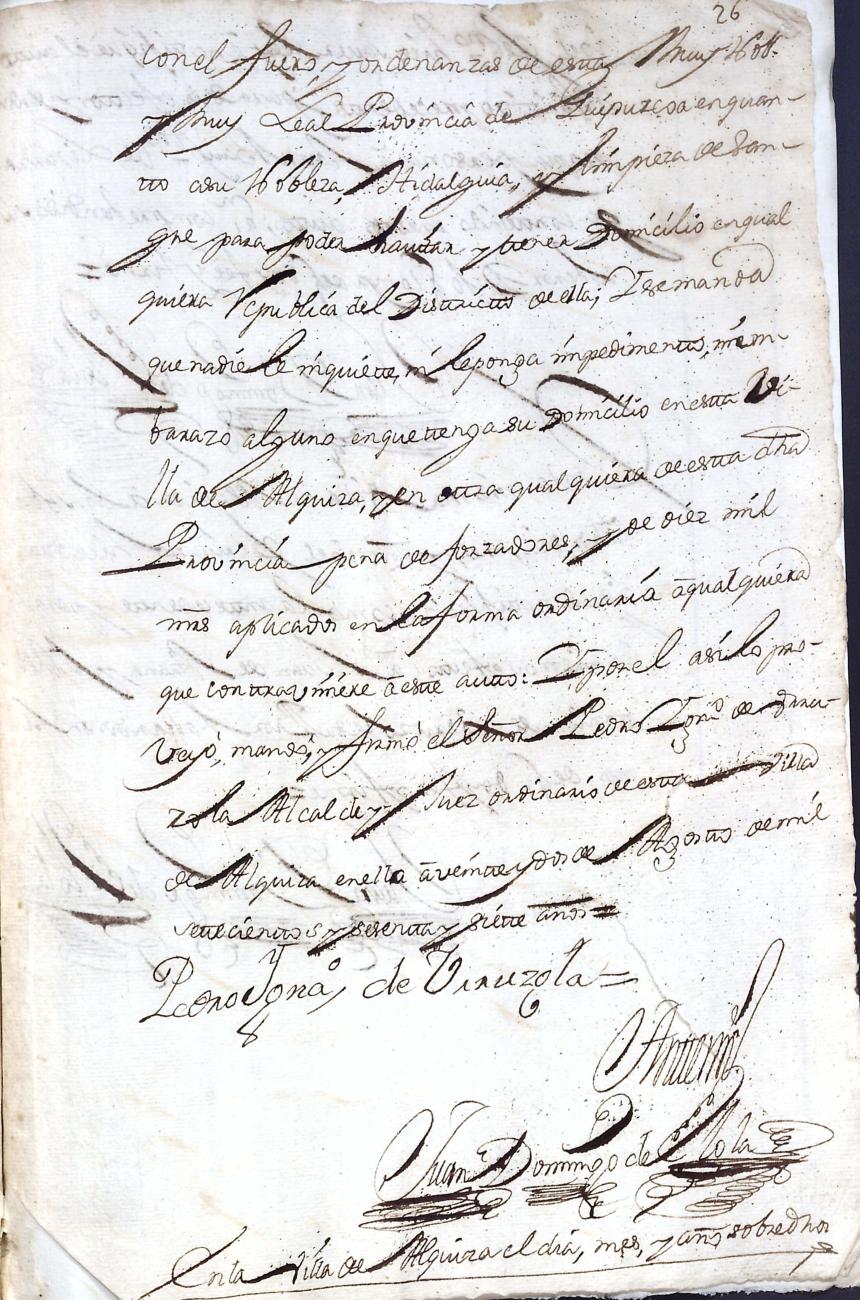 26
con el fuero, y ordenanzas de esta Muy Nob.
y Muy Leal Provincia de Guipuzcoa en quan-
tto a su Nobleza, Hidalguia, y limpieza de San-
gre para poder havitar y tener Domicilio en qual
quiera Republica del Districtto de ella; Y se manda
que nadie le inquiette, ni le ponga impedimento, ni em-
barazo alguno en que ttenga su Domicilio en estta Vi-
lla de Alquiza, y en ottra qualquiera de estta dha
Provincia pena de forzadores, y de diez mil
mrs aplicados en la forma ordinaria â qualquiera
que contraviniere â este autto: Y por el asi lo pro-
veyó, mandó, y firmó el Señor Pedro Ygnº de
zola Alcalde y Juez ordinario de estta Villa
de Alquiza en ella â veintte y dos de Agosto de mil
settecienttos y sesenta y siette años=
Pedro Ygnaº, de Yruzola=
Antemi
Juan Domingo de Ollola
En la Villa de Alquiza el dia, mes, y año sobredhos